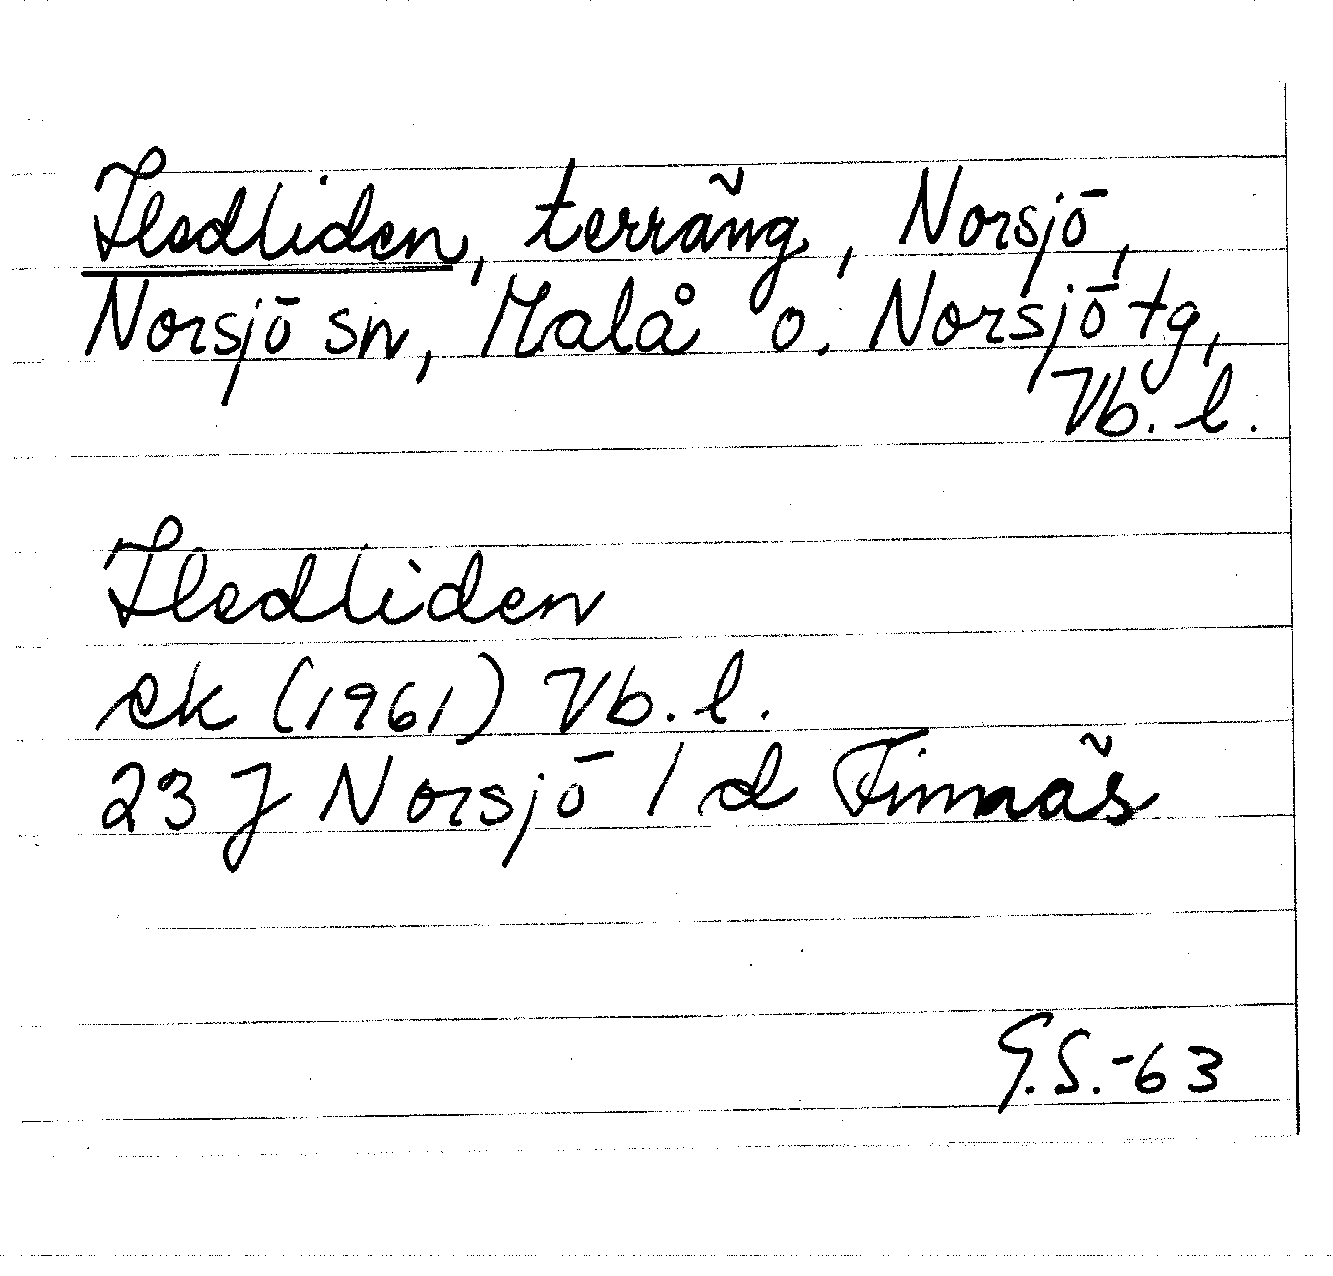 Hedliden, terräng, Norsjö,
Norsjö sn, Malå o. Norsjö tg,
Vb. l.
Hedliden
ek (1961) Vb. l.
23 J Norsjö 1 d Finnäs
G.S.-63